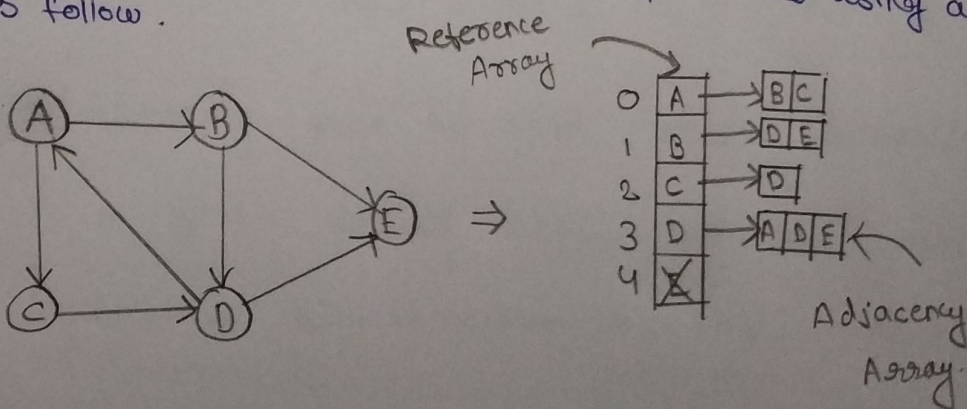 s follow.
using a
Reference
Array
A
B
C
D
E
⇒
0 A → B C
1 B → D E
2 C → D
3 D → A D E
4
Adjacency
Array.